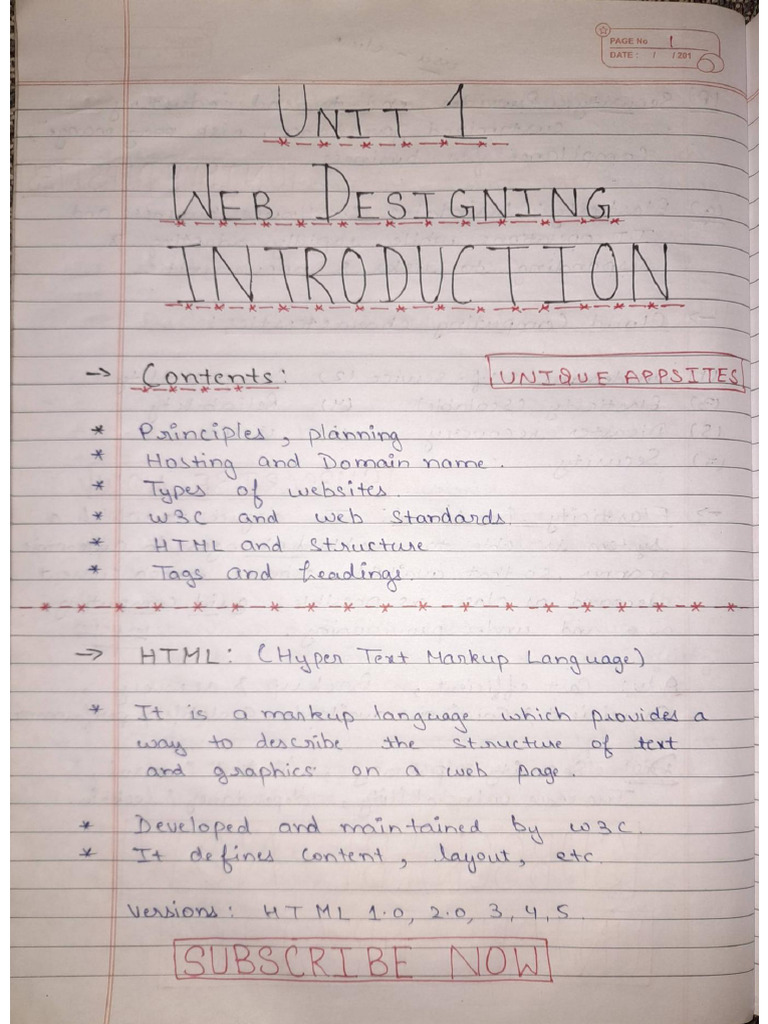 PAGE No 1
DATE : / / 201
UNIT 1
WEB DESIGNING
INTRODUCTION
→ Contents:
UNIQUE APPSITES
* Principles, planning
* Hosting and Domain name.
* Types of websites.
* W3C and web standards.
* HTML and structure
* Tags and headings.
→ HTML: (Hyper Text Markup Language)
* It is a markup language which provides a
way to describe the structure of text
and graphics on a web page.
* Developed and maintained by W3C.
* It defines content, layout, etc.
Versions: HTML 1.0, 2.0, 3, 4, 5.
SUBSCRIBE NOW